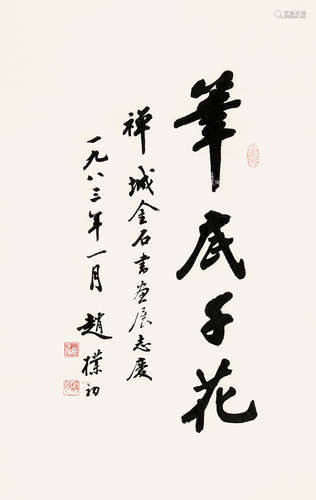 筆底千花
禅城金石書畫展志慶
一九八三年一月 趙樸初